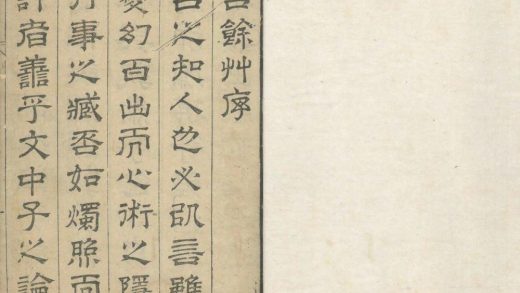 餘艸序
之知人也必訊言雖
幻百出而心術之隱
事之臧否如燭照而
者譱乎文中子之論